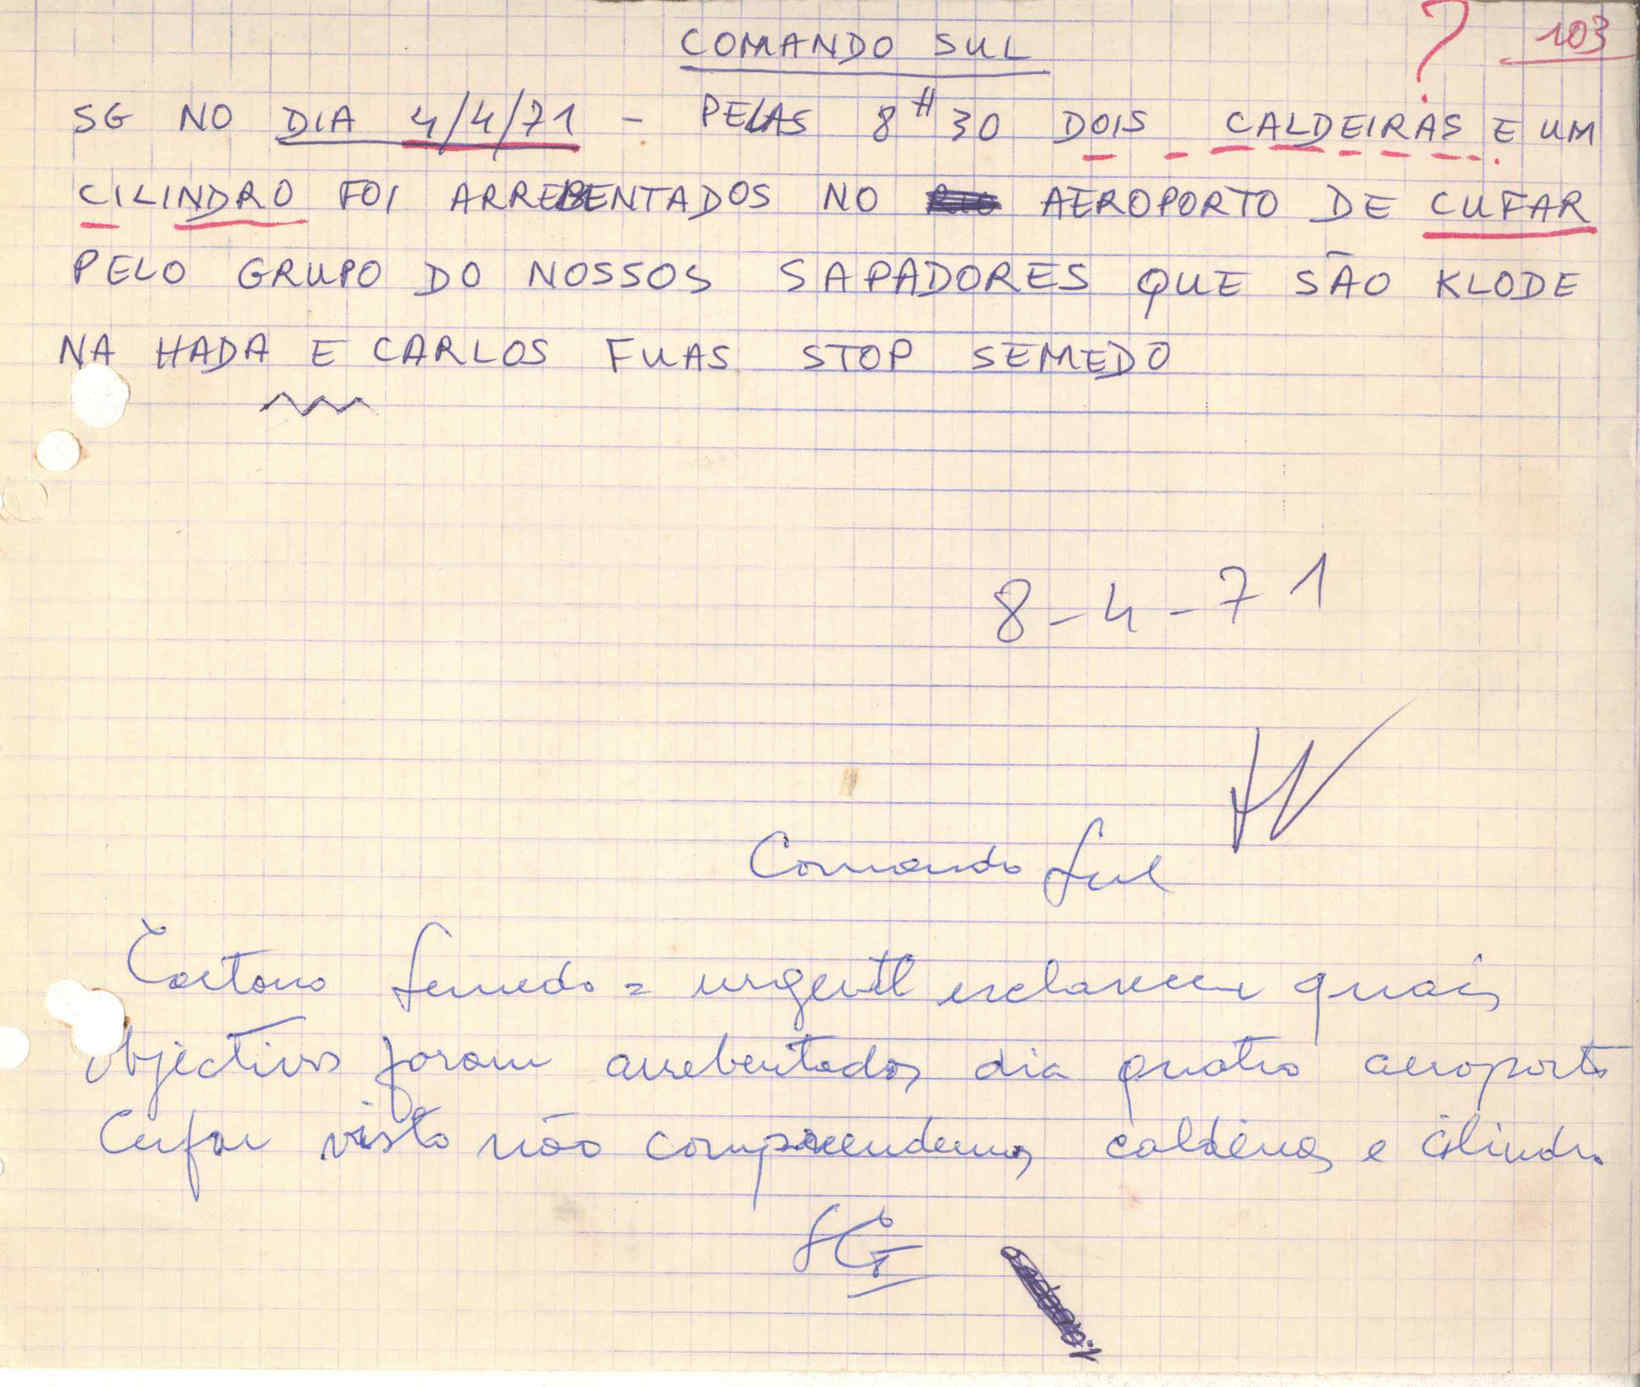 COMANDO SUL
? 103
SG NO DIA 4/4/71 - PELAS 8H30 DOIS CALDEIRAS E UM
CILINDRO FOI ARREBENTADOS NO AEROPORTO DE CUFAR
PELO GRUPO DO NOSSOS SAPADORES QUE SÃO KLODE
NA HADA E CARLOS FUAS STOP SEMEDO
8-4-71
Comando Sul
Caetano Semedo = urgente esclarecer quais
objectivos foram arrebentados dia quatro aeroporto
Cufar visto não compreendemos caldeiras e cilindro
SG